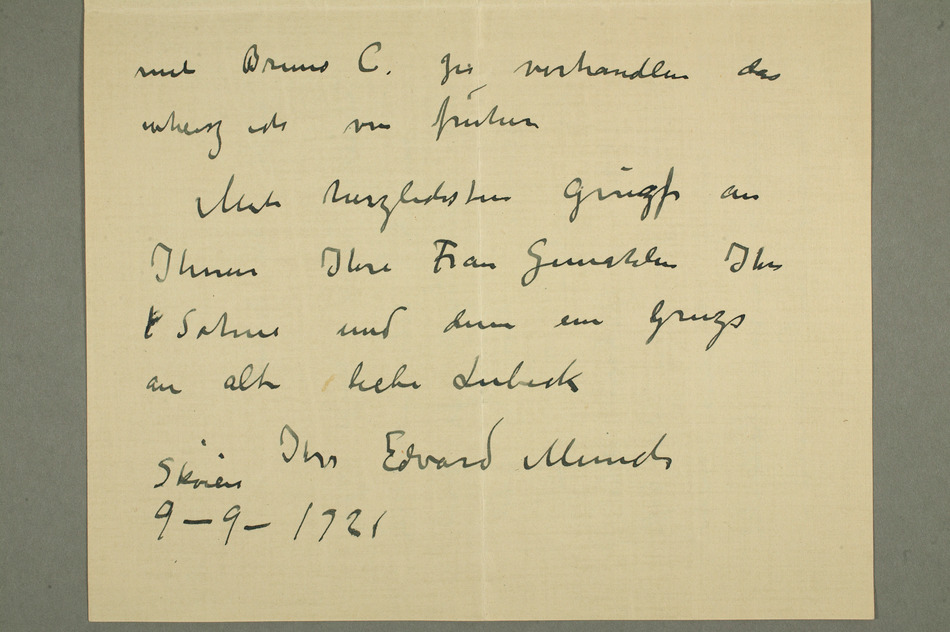 mit Bruno C. zu verhandlen das
ich von früher
Mit herzlichsten Grüsze an
Ihnen Ihre Frau Gemahlin Ihre
Söhne und dann ein Grusz
an alte liebe Lubeck
Ihr Edvard Munch
Skøien
9–9– 1921